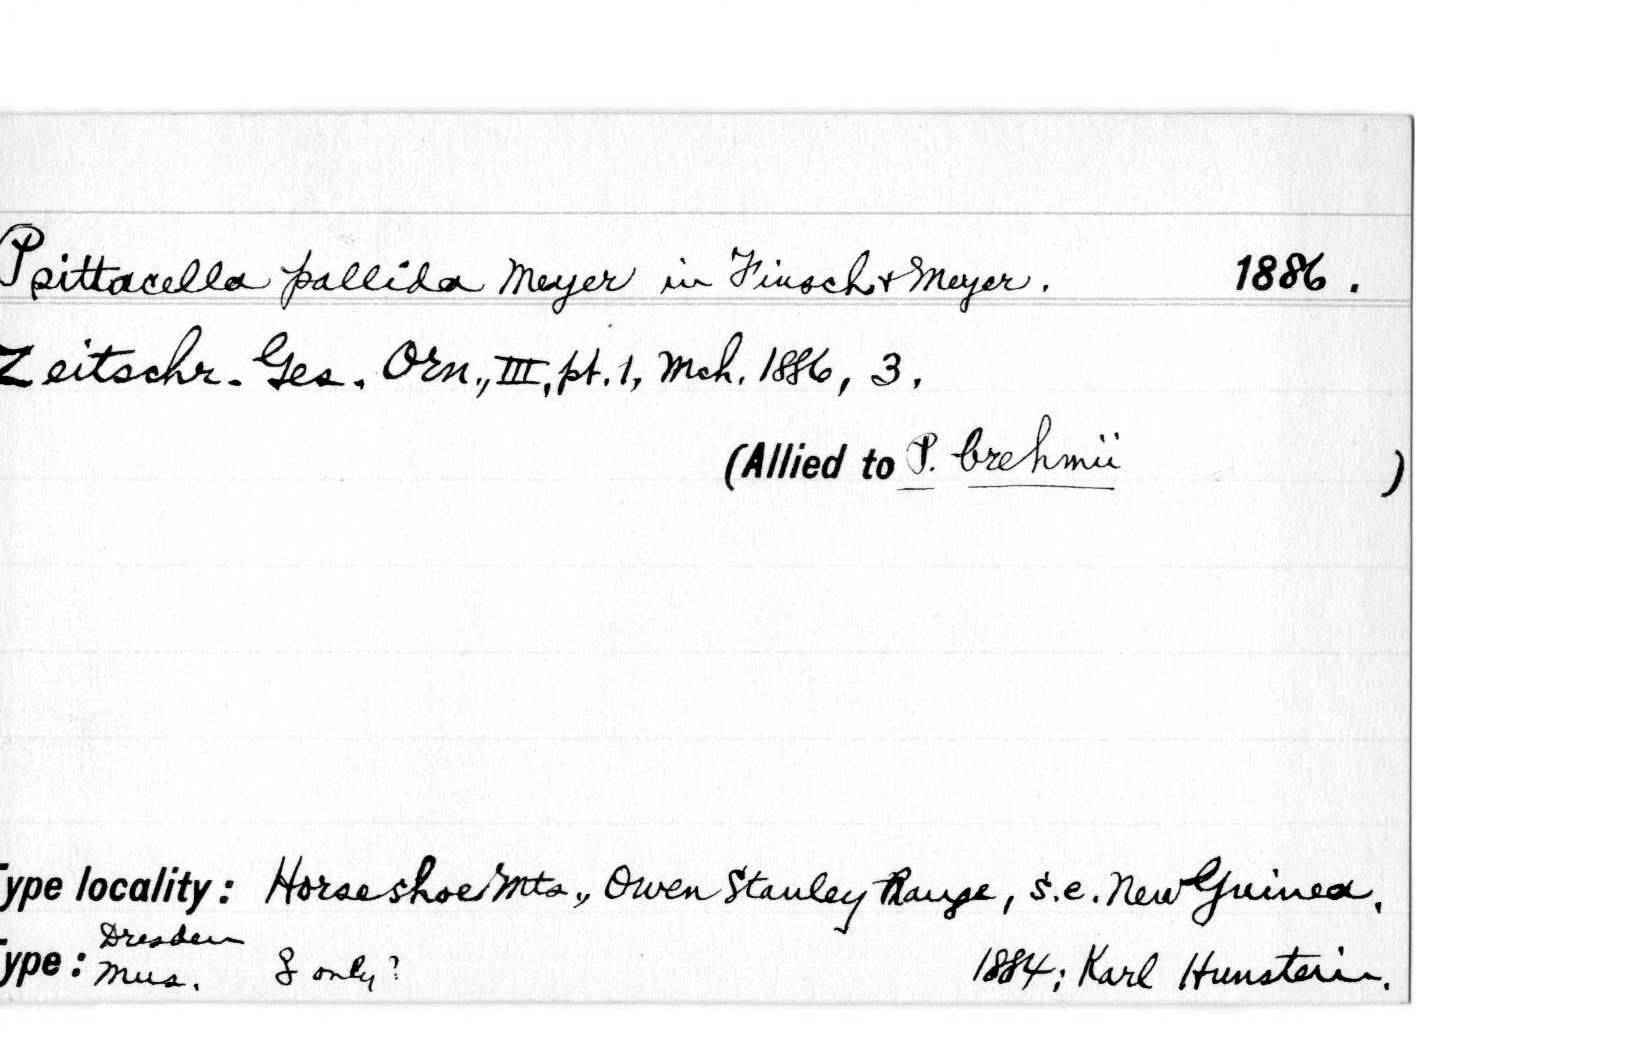 Psittacella pallida Meyer in Finsch & Meyer. 1886.
Zeitschr. Ges. Orn., III, pt. 1, Mch. 1886, 3.
(Allied to P. brehmii )
Type locality: Horseshoe Mts., Owen Stanley Range, s.e. New Guinea.
Type: Dresden Mus. only? 1884; Karl Hunstein.